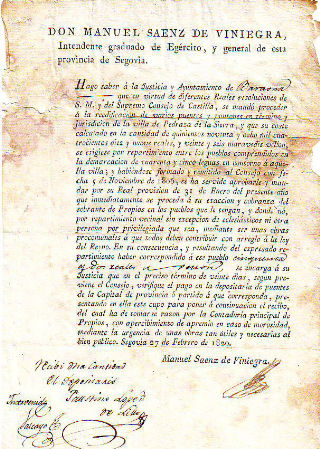 DON MANUEL SAENZ DE VINIEGRA,
Intendente graduado de Egército, y general de esta
provincia de Segovia.
Hago saber á la Justicia y Ayuntamiento de
que en virtud de diferentes Reales resoluciones de
S. M. y del Supremo Consejo de Castilla, se mandó proceder
á la reedificacion de varios puentes y pontones en término y
jurisdiccion de la villa de Pedraza de la Sierra, y que su coste
calculado en la cantidad de quinientos noventa y ocho mil cua-
trocientos diez y nueve reales, y veinte y seis maravedis vellon,
se exigiese por repartimiento entre los pueblos comprehendidos en
la demarcacion de cuarenta y cinco leguas en contorno á aque-
lla villa; y habiéndose formado y remitido al Consejo con fe-
cha 5 de Noviembre de 1805, se ha servido aprobarle y man-
dar por su Real provision de 31 de Enero del presente año
que inmediatamente se proceda á su exaccion y cobranza del
sobrante de Propios en los pueblos que le tengan, y donde no,
por repartimiento vecinal sin excepcion de eclesiásticos ni otra
persona por privilegiada que sea, mediante ser unas obras
procomunales á que todos deben contribuir con arreglo á la ley
del Reino. En su consecuencia, y resultando del expresado re-
partimiento haber correspondido á ese pueblo cinquenta
y dos reales se encarga á su
Justicia que en el preciso término de veinte dias, segun pro-
viene el Consejo, verifique el pago en la depositaría de puentes
de la Capital de provincia ó partido á que corresponda, pre-
sentando en ella este cupo para poner á continuacion el recibo,
del cual ha de tomarse razon por la Contaduría principal de
Propios, con apercibimiento de apremio en caso de morosidad,
mediante la urgencia de unas obras tan útiles y necesarias al
bien público. Segovia 27 de Febrero de 1820.
Manuel Saenz de Viniegra.
Recibi dha Cantidad
El Depositario
Faustino
de